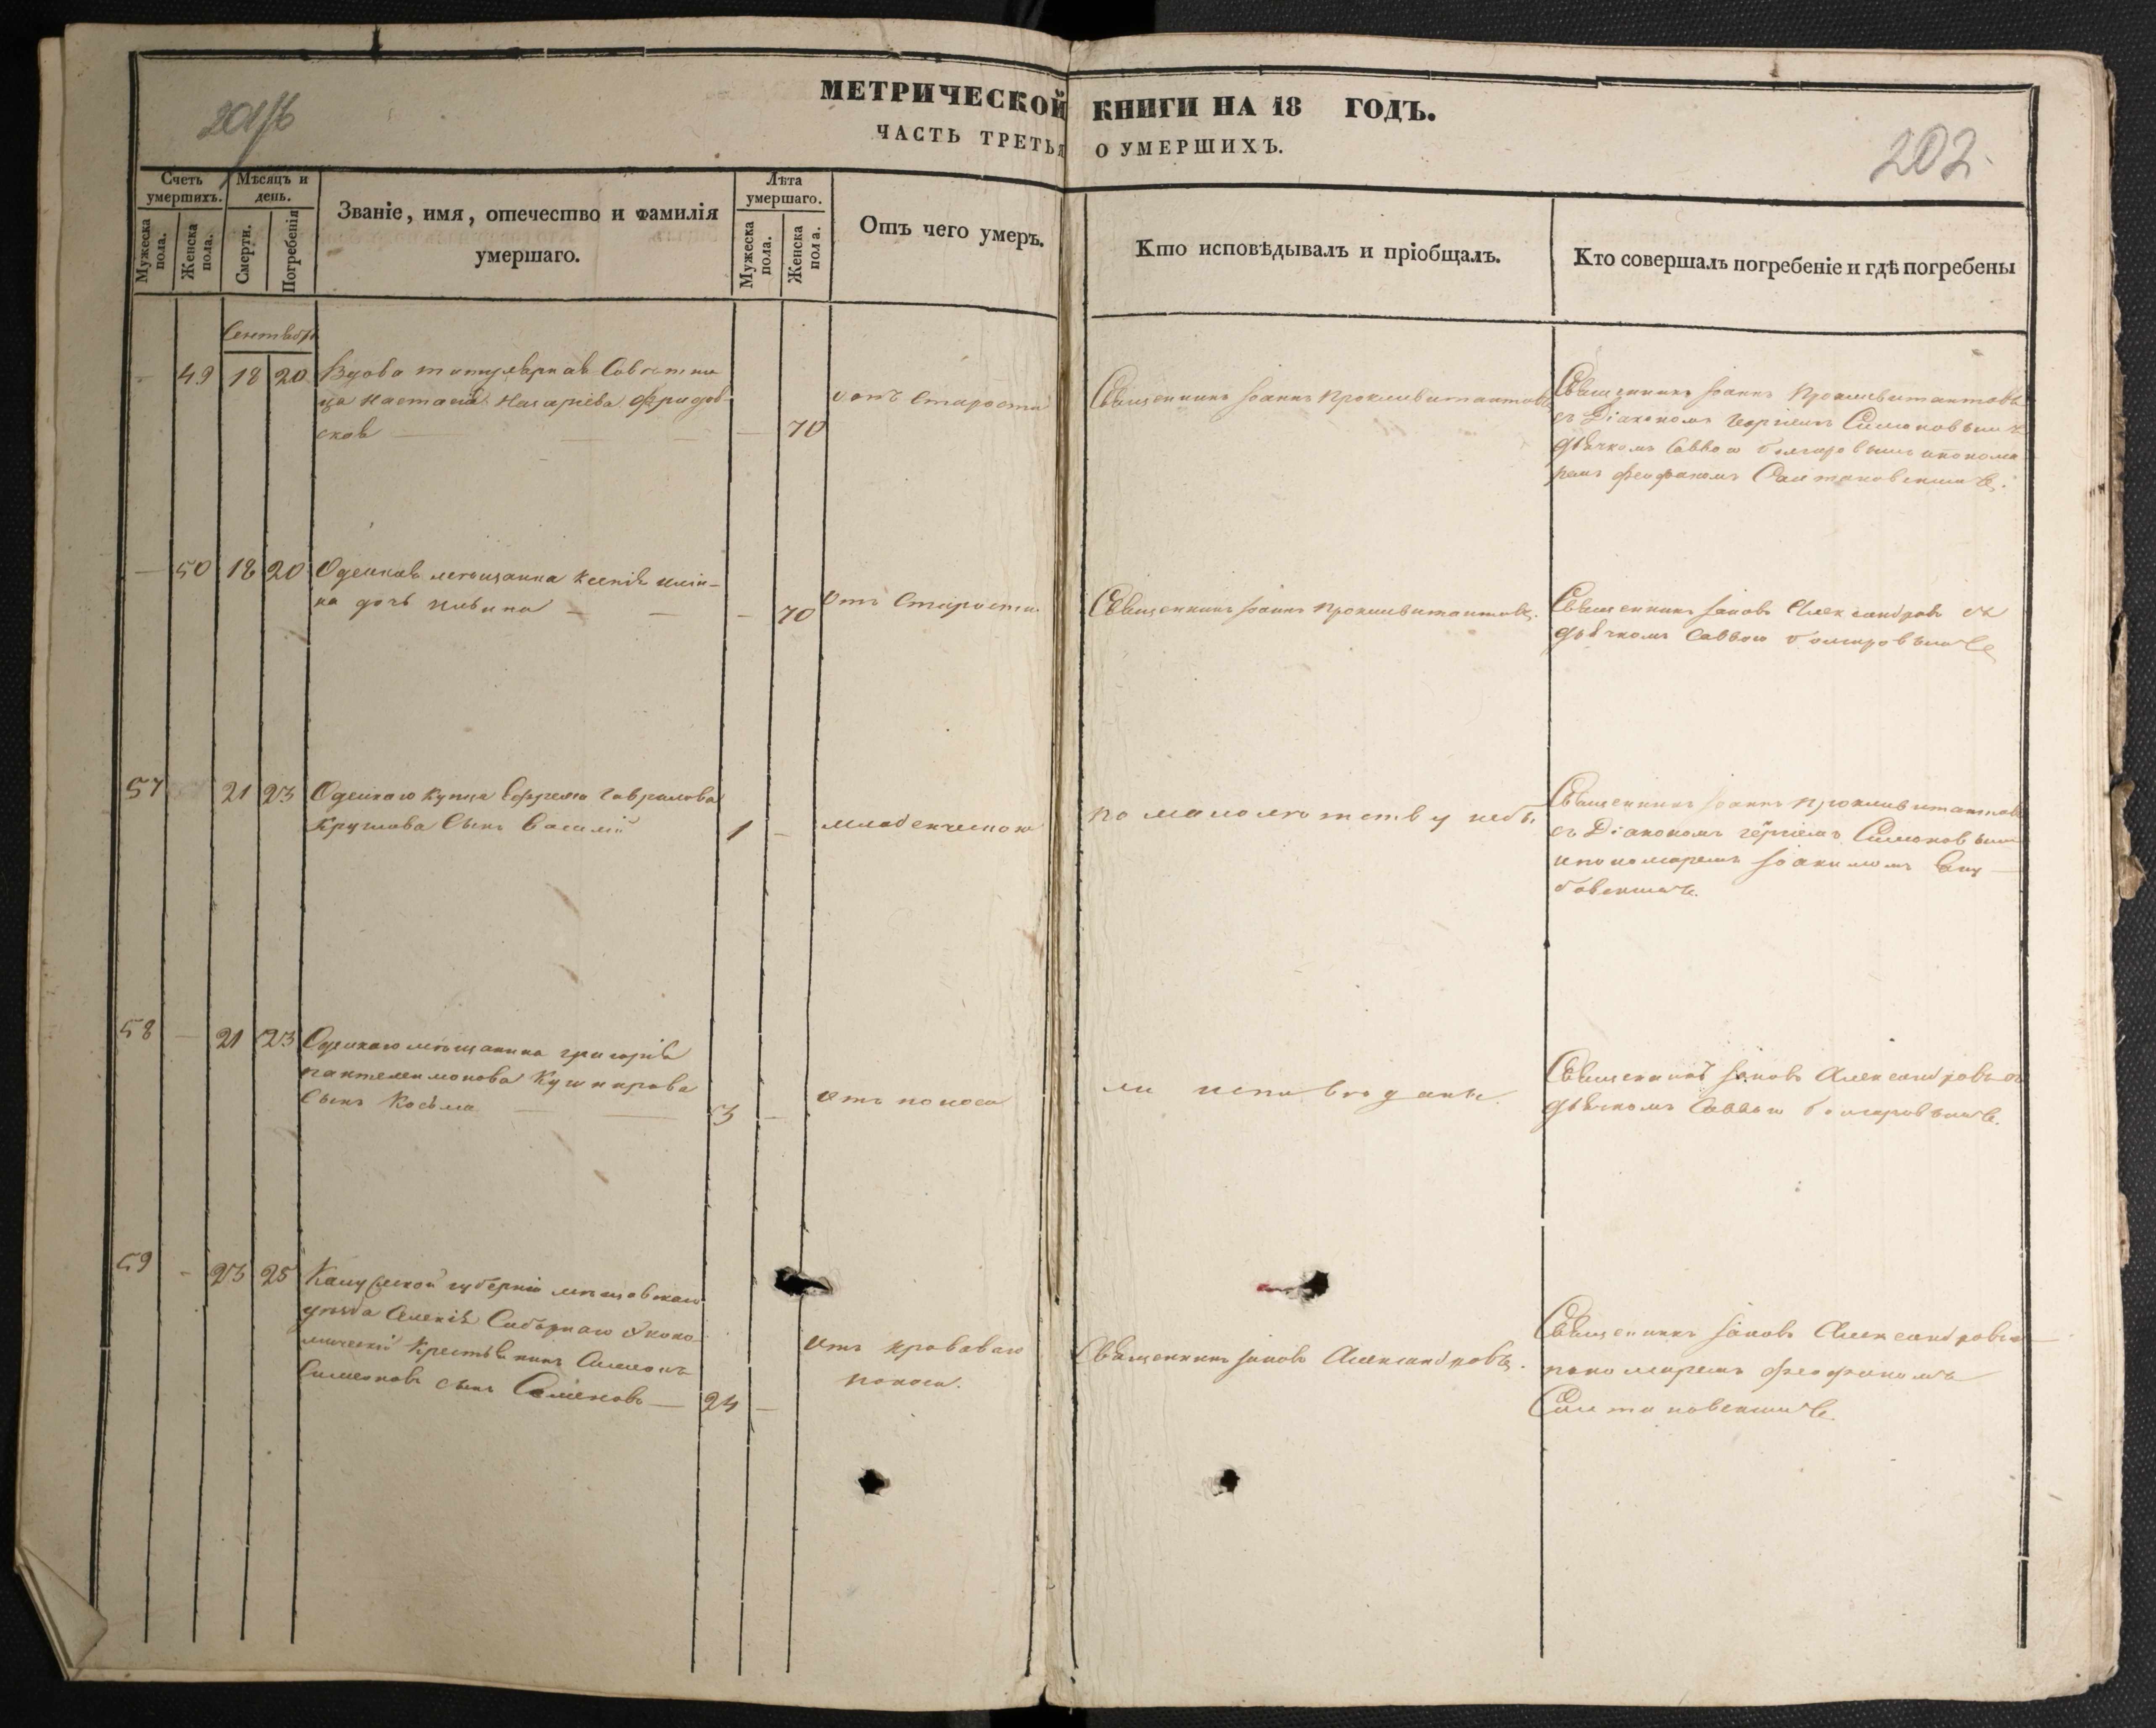 201/б
202.
МЕТРИЧЕСКОЙ КНИГИ НА 18 ГОДЪ.
ЧАСТЬ ТРЕТЬЯ О УМЕРШИХЪ.
Счетъ умершихъ.
Мужеска пола.
Женска пола.
Мѣсяцъ и день.
Смерти.
Погребенія
Званіе, имя, отечество и фамилія
умершаго.
Лѣта умершаго.
Мужеска пола.
Женска пола.
Отъ чего умеръ.
Кто исповѣдывалъ и пріобщалъ.
Кто совершалъ погребеніе и гдѣ погребены
Сентябрь
— 49 18 20
Вдова титулярная Совѣтни
ца Настасія Назаріева
ская
— 70
отъ Старости
Священникъ Іоаннъ
Священникъ Іоаннъ
съ Діакономъ Георгіемъ Симоновымъ
дьячкомъ Саввою Болгаровымъ и понома
ремъ Феофаномъ
— 50 18 20
Одеская мѣщанка Ксенія
на дочь
— 70
Отъ Старости
Священникъ Іоаннъ
Священникъ Іаковъ Александровъ съ
дьячкомъ Саввою Болгаровымъ
57 21 23
Одескаго Купца Ефрема Гаврилова
Круглова Сынъ Василій
1 —
младенческою
по малолетству небъ
Священникъ Іоаннъ
съ Діакономъ Георгіемъ Симоновымъ
и пономаремъ Іоакимомъ
58 — 21 23
Одескаго мѣщанина Григорія
Пантелеимонова Кушнирова
Сынъ Косьма
3 —
Отъ поноса
не исповѣданъ.
Священникъ Іаковъ Александровъ съ
дьячкомъ Саввою Болгаровымъ.
59 — 23 25
Калужской губерніи Мещовскаго
уѣзда
Крестьянинъ Симеонъ
Симеоновъ сынъ Семеновъ
24 —
Отъ кроваваго
поноса.
Священникъ Іаковъ Александровъ.
Священникъ Іаковъ Александровъ
пономаремъ Феофаномъ